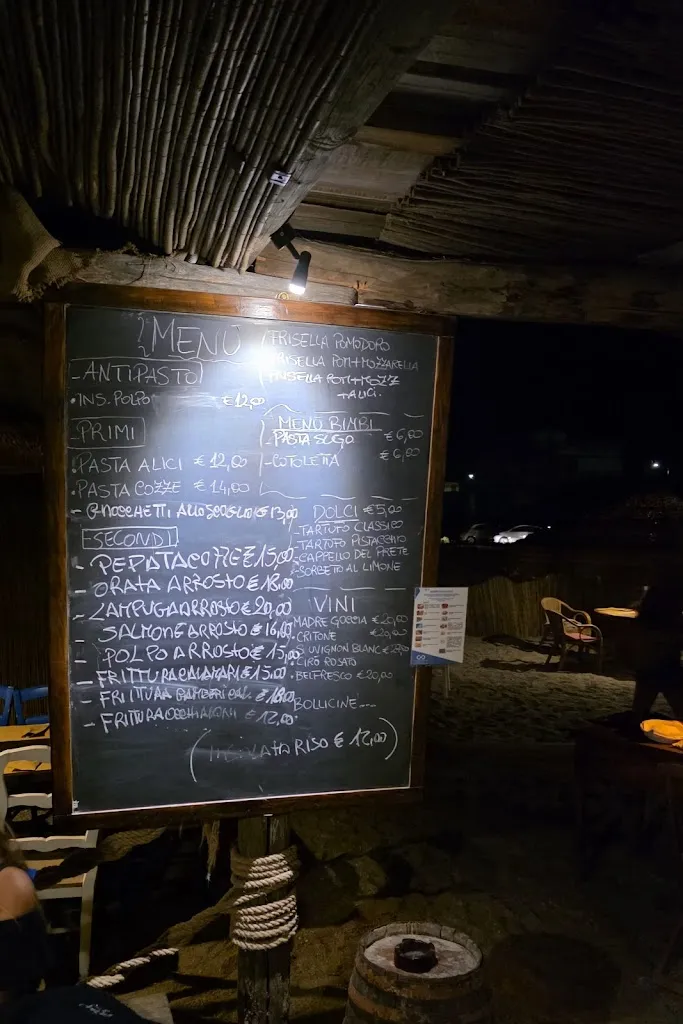 MENÙ
-ANTIPASTO
•INS. POLPO €12,00
-PRIMI
•PASTA ALICI €12,00
•PASTA COZZE €14,00
- GNOCCHETTI ALLO SCOGLIO €13,00
-SECONDI
- PEPATA COZZE €15,00
- ORATA ARROSTO €18,00
- LAMPUGA ARROSTO €20,00
- SALMONE ARROSTO €16,00
- POLPO ARROSTO €15,00
- FRITTURA CALAMARI €15,00
- FRITTURA
- FRITTURA €12,00
FRISELLA POMODORO
FRISELLA POM+MOZZARELLA
FRISELLA POM+MOZZ
+ALICI.
MENÙ BIMBI
-PASTA SUGO €6,00
-COTOLETTA €6,00
DOLCI €5,00
-TARTUFO CLASSICO
-TARTUFO PISTACCHIO
-CAPPELLO DEL PRETE
-SORBETTO AL LIMONE
VINI
MADRE GOCCIA €20,00
CRITONE €20,00
SAUVIGNON BLANC
CIRÒ ROSATO
BELFRESCO €20,00
BOLLICINE---
(INSALATA RISO €12,00)